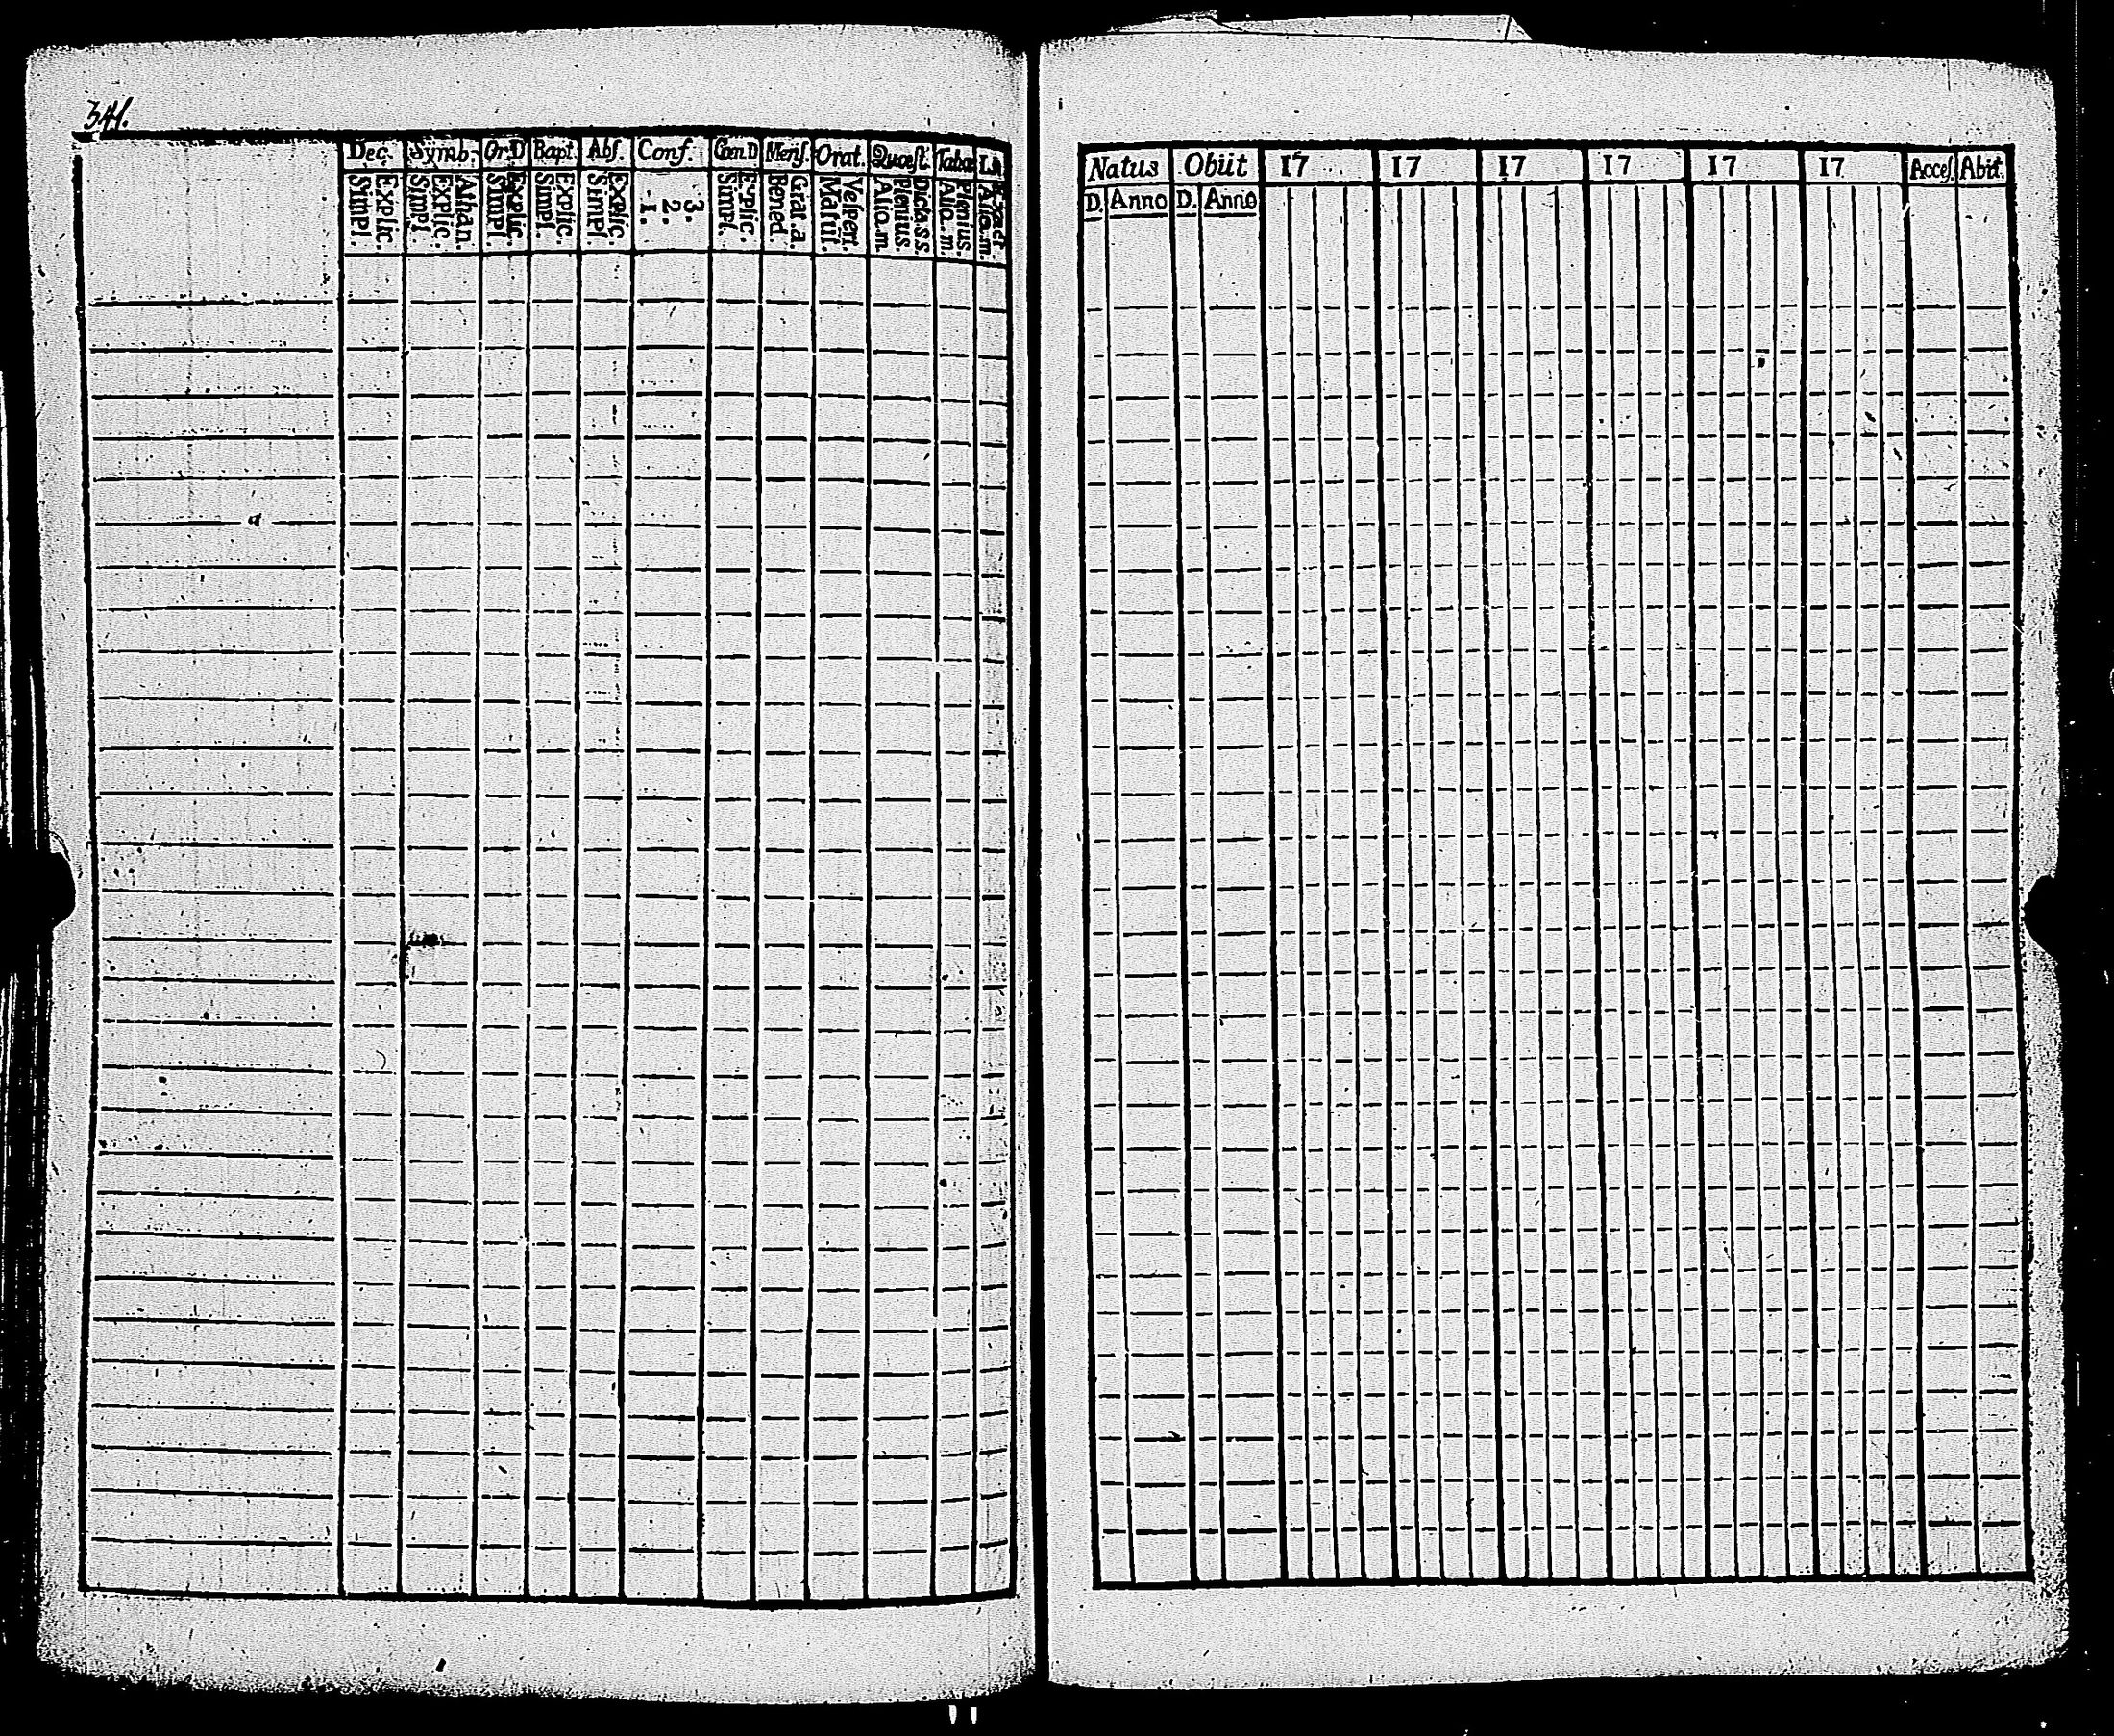 341.
Dec. Symb. Or.D Bapt. Abſ. Conf. Cœn.D Menſ. Orat. Quæſt. Tabœ
Simpl. Explic.
Simpl. Explic. Athan.
Simpl. Explic.
Simpl. Explic.
Simpl. Explic.
1. 2. 3.
Simpl. Explic.
Bened. Grat. a.
Matut. Veſpert.
Alio. m. Plenius. Dicta. ss.
Alio. m. Plenius.
Natus Obiit 17 17 17 17 17 17 Acceſ. Abit.
D. Anno D. Anno